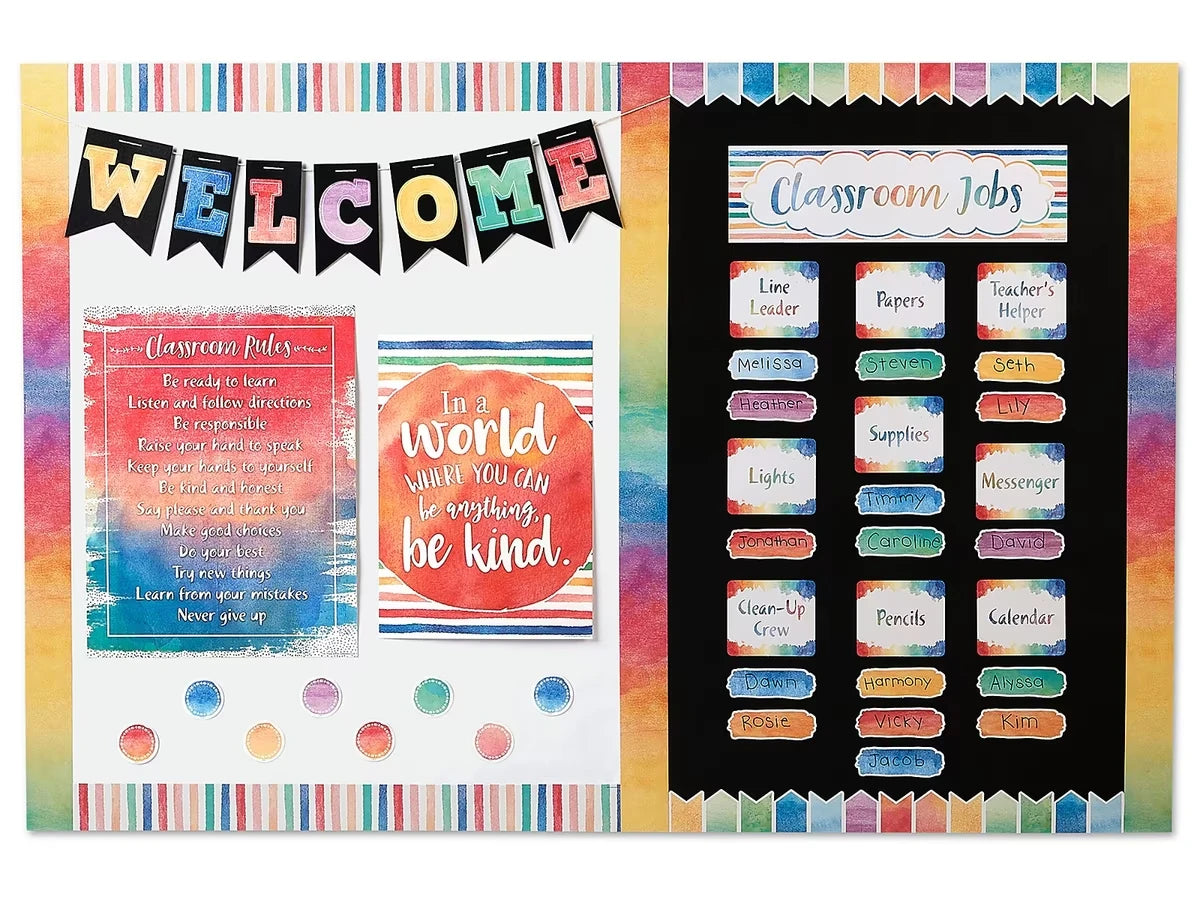 WELCOME
Classroom Rules
Be ready to learn
Listen and follow directions
Be responsible
Raise your hand to speak
Keep your hands to yourself
Be kind and honest
Say please and thank you
Make good choices
Do your best
Try new things
Learn from your mistakes
Never give up
In a
world
WHERE YOU CAN
be anything,
be kind.
Classroom Jobs
Line
Leader
Melissa
Heather
Lights
Jonathan
Clean-Up
Crew
Dawn
Rosie
Papers
Steven
Supplies
Timmy
Caroline
Pencils
Harmony
Vicky
Jacob
Teacher's
Helper
Seth
Lily
Messenger
David
Calendar
Alyssa
Kim